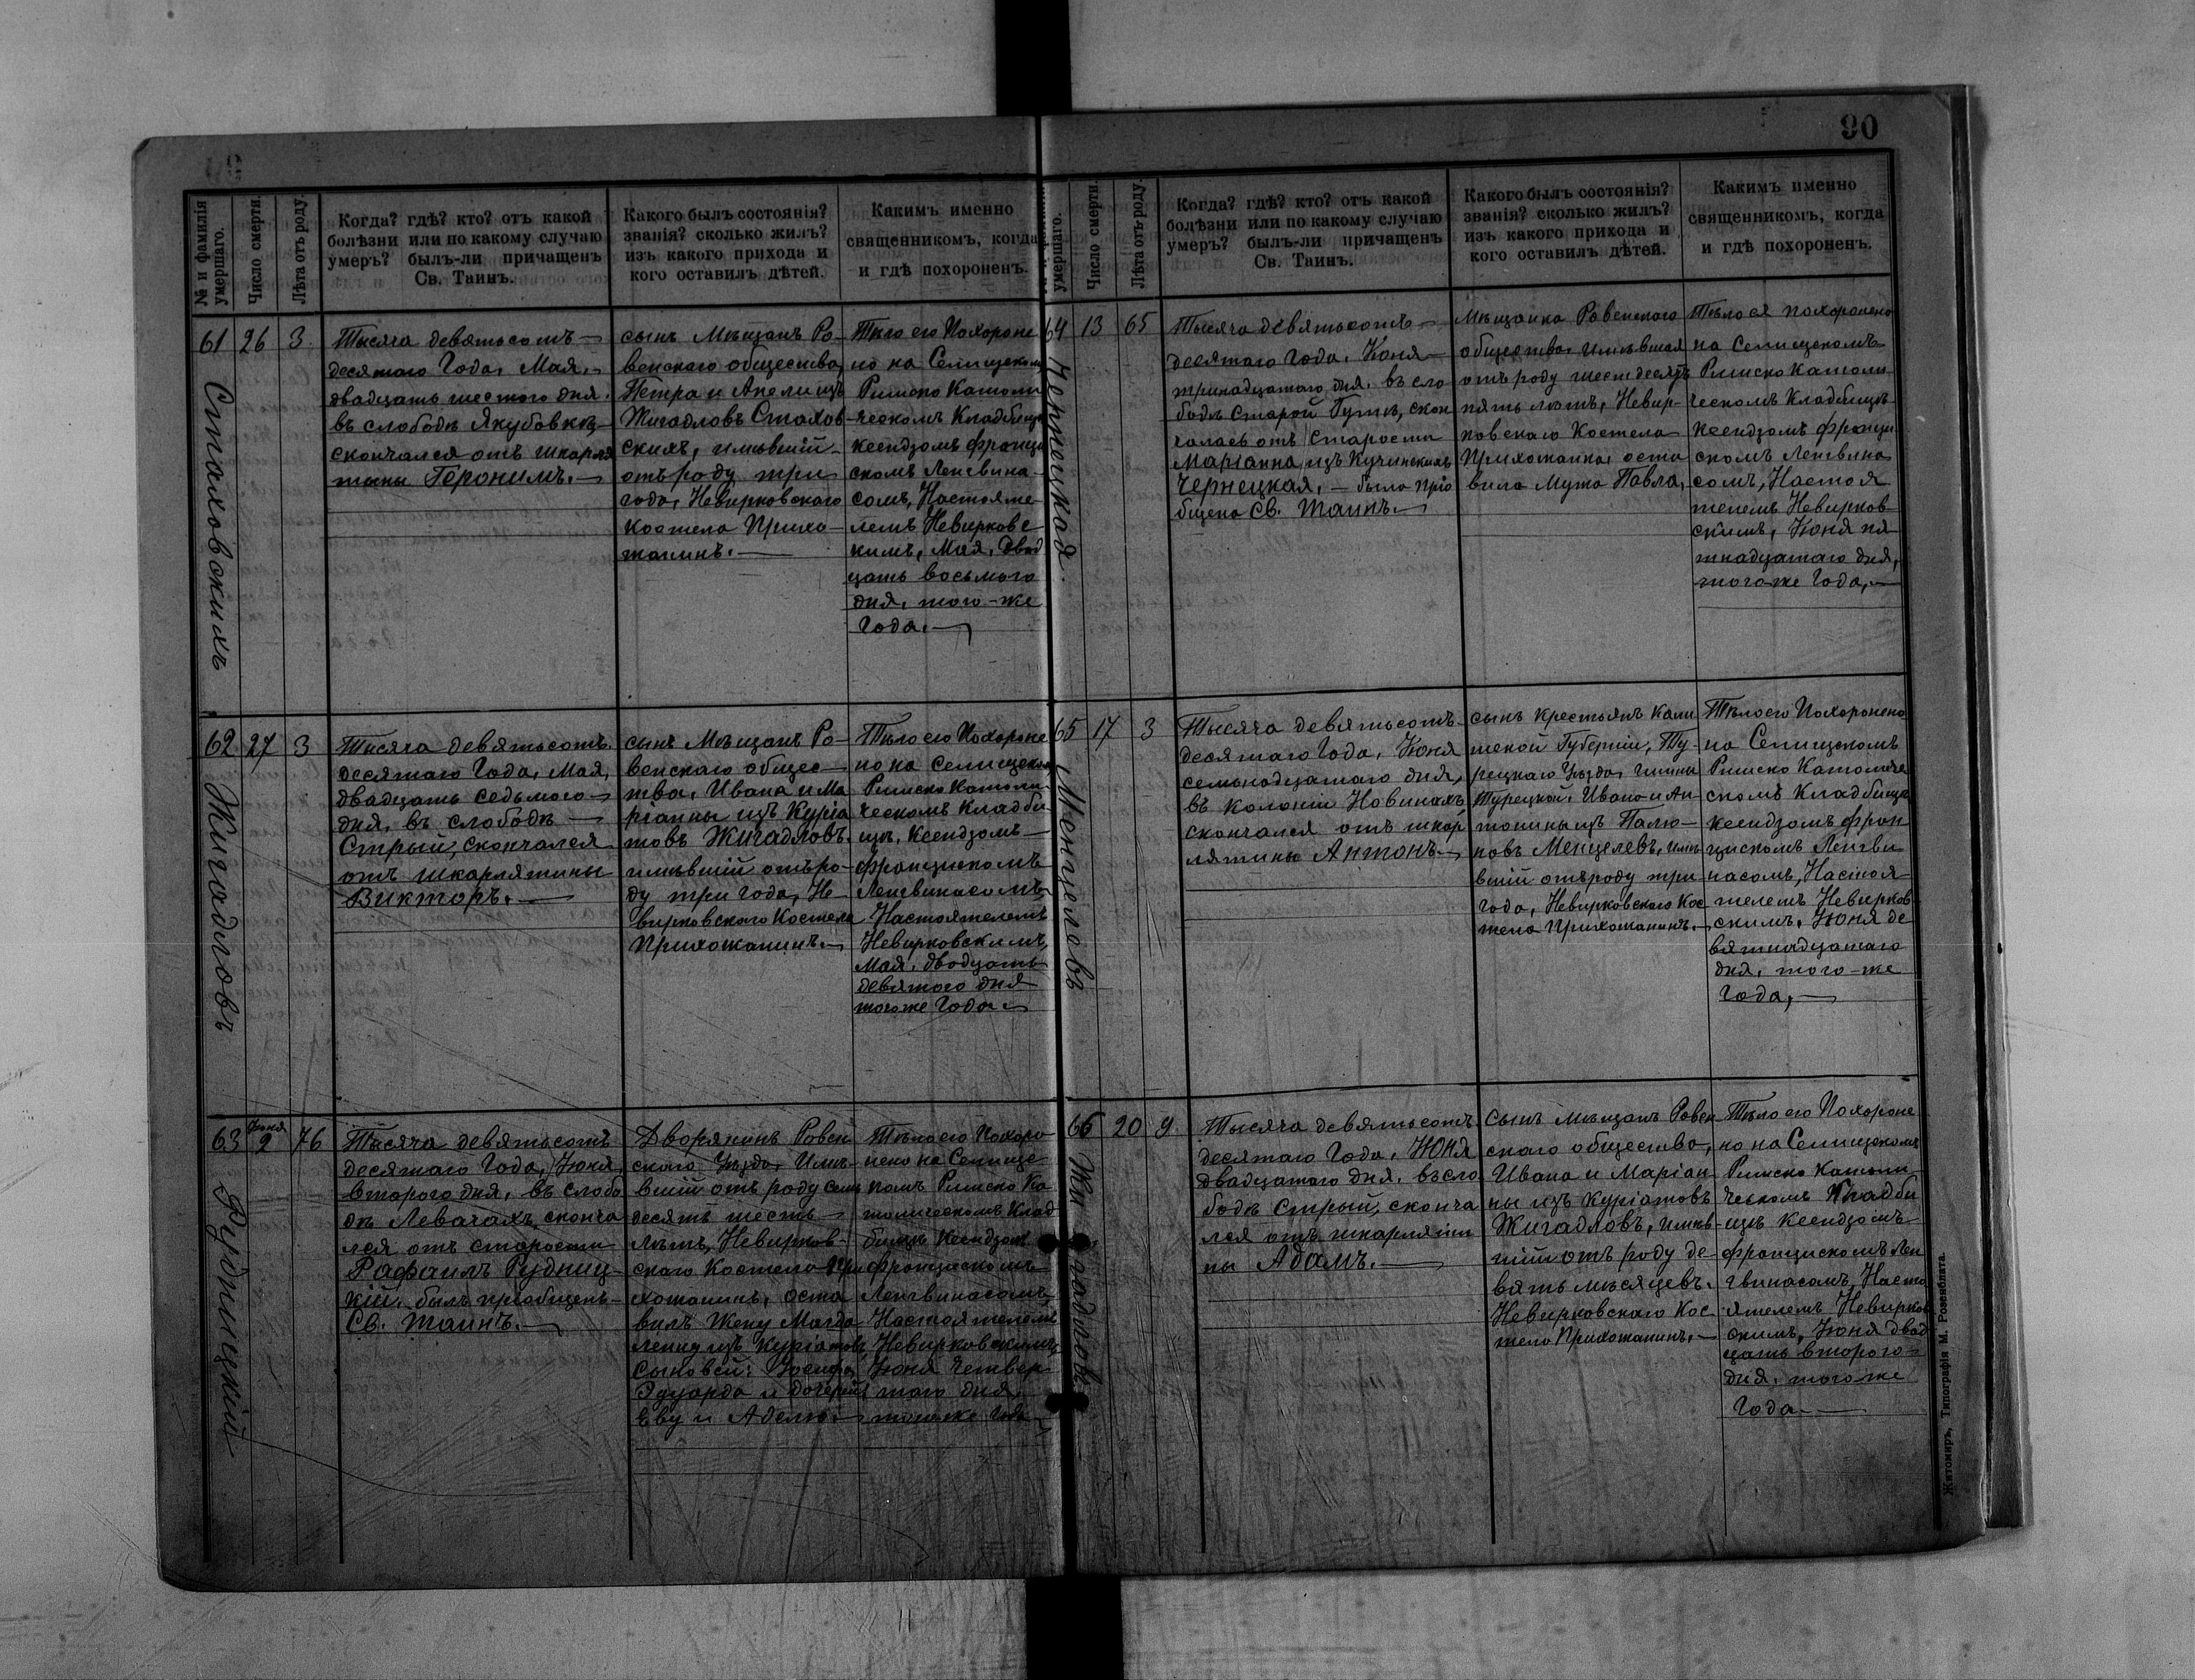 90
№ и фамилія умершаго.
Число смерти.
Лѣта отъ роду.
Когда? гдѣ? кто? отъ какой
болѣзни или по какому случаю
умеръ? былъ-ли причащенъ
Св. Таинъ.
Какого былъ состоянія?
званія? сколько жилъ?
изъ какого прихода и
кого оставилъ дѣтей.
Какимъ именно
священникомъ, когда
и гдѣ похороненъ.
61
26
3
Стаховскихъ
Тысяча девятьсотъ
десятаго Года, Мая,
двадцать шестого дня.
въ слободѣ Якубовкѣ
скончался отъ шкарля
тины Геронимъ.
сынъ Мѣщанъ Ро-
венскаго общества,
Петра и Анели изъ
Жигадловъ Стахов-
скихъ, имѣвшій
отъ роду три
года, Невирковскаго
костела Прихо-
жанинъ.
Тѣло его Похороне
но на Селищском
Римско Католи
ческомъ Кладбищѣ
Ксендзомъ Франци
скомъ Ленгвина-
сомъ, Настояте-
лемъ Невирковс
кимъ, Мая, двад
цать восьмого
дня, того-же
Года.
62
27
3
Жигадловъ
Тысяча девятьсотъ
десятаго Года, Мая,
двадцать седьмого
дня, въ слободѣ
Стрый, скончался
отъ шкарлятины
Викторъ.
сынъ Мѣщанъ Ро-
венскаго общес-
тва, Ивана и Ма
ріанны изъ Куріа
товъ Жигадловъ.
имѣвшій отъ ро-
ду три года, Не-
вирковскаго Костела
Прихожанинъ.
Тѣло его Похороне
но на Селищском
Римско Католи-
ческомъ Кладби
щѣ, Ксендзомъ
Францискомъ
Ленгвинасомъ,
Настоятелемъ
Невирковскимъ,
Мая, двадцать
девятого дня
того же Года
63
Іюня
2
76
Рудницкій
Тысяча девятьсотъ
десятаго Года, Іюня,
второго дня, въ слобо
дѣ Левачахъ, сконча
лся отъ старости
Рафаилъ Рудниц-
кій, былъ пріобщенъ
Св. Таинъ.
Дворянинъ Ровен
скаго Уѣзда, Имѣ-
вшій отъ роду семь
десятъ шесть
лѣтъ, Невирков-
скаго Костела При
хожанинъ, оста
вилъ Жену Магда
лену изъ Куріатовъ,
Сыновей: Іосифа,
Эдуарда и дочерей
Еву и Аделю.
Тѣло его Похоро
нено на Селище-
комъ Римско Ка
толическомъ Клад
бищѣ Ксендзомъ
Францискомъ
Ленгвинасомъ,
Настоятелемъ
Невирковскимъ,
Іюня Четвер-
таго дня,
того же Года
умершаго.
Число смерти.
Лѣта отъ роду.
Когда? гдѣ? кто? отъ какой
болѣзни или по какому случаю
умеръ? былъ-ли причащенъ
Св. Таинъ.
Какого былъ состоянія?
званія? сколько жилъ?
изъ какого прихода и
кого оставилъ дѣтей.
Какимъ именно
священникомъ, когда
и гдѣ похороненъ.
64
13
65
Чернецкая
Тысяча девятьсотъ
десятаго Года, Іюня
тринадцатаго дня, въ сло
бодѣ Старой Гутѣ, скон
чалась отъ старости
Маріанна изъ Кучинскихъ
Чернецкая, была пріо
бщена Св. Таинъ.
Мѣщанка Ровенскаго
общества, имѣвшая
отъ роду шестдесятъ
пять лѣтъ, Невир-
ковскаго Костела
Прихожанка, оста
вила Мужа Павла,
Тѣло ея похоронено
на Селищскомъ
Римско Католи
ческомъ Кладбищѣ
Ксендзомъ Франци
скомъ Ленгвина
сомъ, Настоя
телемъ Невирков
скимъ, Іюня пя
тнадцатаго дня,
того-же Года,
65
17
3
Менцеловъ
Тысяча девятьсотъ
десятаго Года, Іюня
семнадцатаго дня,
въ колоніи Новинахъ
скончался отъ шкар
лятины Антонъ
сынъ крестьянъ Кали
шской Губерніи, Ту-
рецкаго Уѣзда, Гмины
Турецкой, Ивана и Ан-
тонины изъ Палю-
ковъ Менцелевъ, имѣ
вшій отъ роду три
Года, Невирковскаго Кос
тела Прихожанинъ.
Тѣло его Похоронено
на Селищскомъ
Римско Католиче
скомъ Кладбищѣ
Ксендзомъ Фран
цискомъ Ленгви
насомъ, Настоя-
телемъ Невирков
скимъ, Іюня де
вятнадцатаго
дня, того-же
Года,
66
20
9
Жигадловъ
Тысяча девятьсотъ
десятаго Года, Іюня
двадцатаго дня, въ сло
бодѣ Стрый, сконча
лся отъ шкарляти
ны Адамъ.
Сынъ мѣщанъ Ровен
скаго общества,
Ивана и Маріан
ны изъ Куріатовъ
Жигадловъ, имѣв-
шій отъ роду де-
вять мѣсяцевъ.
Невирковскаго Кос
тела Прихожанинъ,
Тѣло его Похороне
но на Селищскомъ
Римско Католи
ческомъ Кладби
щѣ Ксендзомъ
Францискомъ Лен
гвинасомъ, Насто
ятелемъ Невирков
скимъ, Іюня двад
цать второго
дня, того же
Года
Житомиръ, Типографія М. Розенблата.